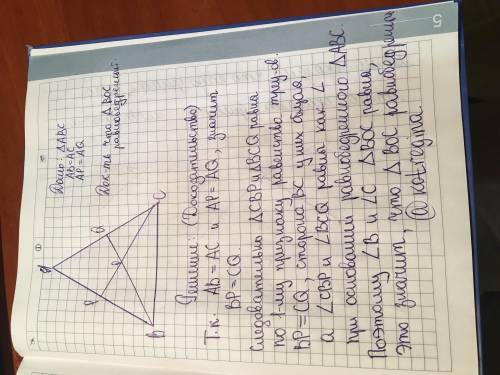 5
A
P
Q
O
B
C
Дано: ΔABC
AB=AC
AP=AQ
Док-ть что ΔBOC
равнобедренный.
Решение: (Доказательство)
Т.к. AB = AC и AP = AQ, значит
BP=CQ.
Следовательно ΔCBP и ΔBCQ равна
по 1му признаку равенства треу-ов.
BP=CQ, сторона BC у них общая,
а ∠CBP и ∠BCQ равна как ∠
при основании равнобедренного ΔABC.
Поэтому ∠B и ∠C ΔBOC равна,
это значит, что ΔBOC равнобедренный